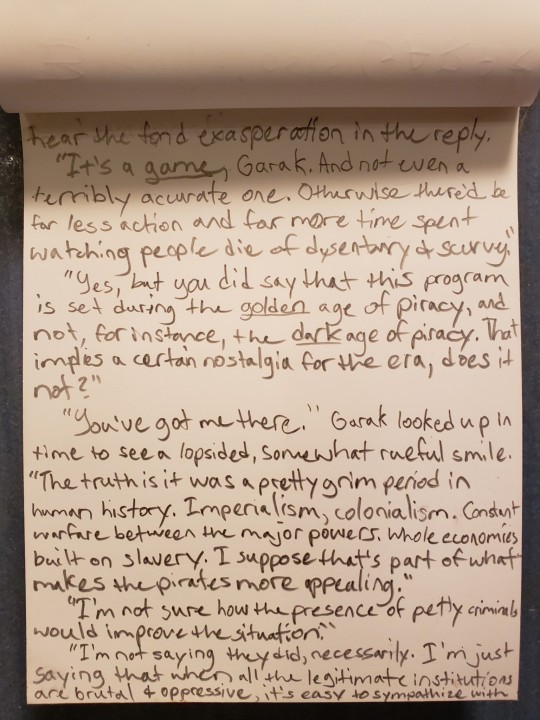 hear the fond exasperation in the reply.
"It's a game, Garak. And not even a
terribly accurate one. Otherwise there'd be
far less action and far more time spent
watching people die of dysentary & scurvy."
"Yes, but you did say that this program
is set during the golden age of piracy, and
not, for instance, the dark age of piracy. That
implies a certain nostalgia for the era, does it
not?"
"You've got me there." Garak looked up in
time to see a lopsided, somewhat rueful smile.
"The truth is it was a pretty grim period in
human history. Imperialism, colonialism. Constant
warfare between the major powers. Whole economies
built on slavery. I suppose that's part of what
makes the pirates more appealing."
"I'm not sure how the presence of petty criminals
would improve the situation."
"I'm not saying they did, necessarily. I'm just
saying that when all the legitimate institutions
are brutal & oppressive, it's easy to sympathize with